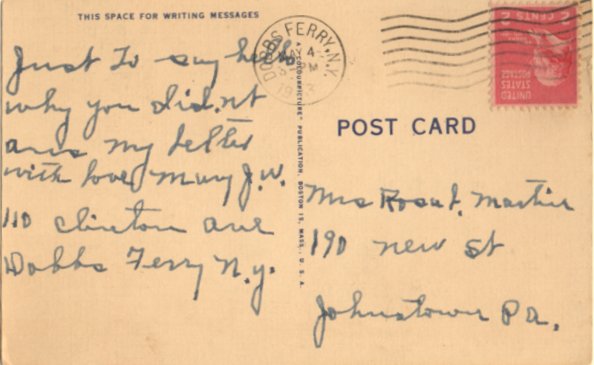 THIS SPACE FOR WRITING MESSAGES
Just To say hello
why you did.nt
ans my letter
with love Mary J.W.
110 Clinton ave
Dobbs Ferry N.Y.
A "COLOURPICTURE" PUBLICATION, BOSTON 15, MASS., U.S.A.
DOBBS FERRY, N.Y.
4
PM
2 CENTS 2
UNITED
STATES
POSTAGE
POST CARD
Mrs Rosa Martin
190 new St
Johnstown Pa.